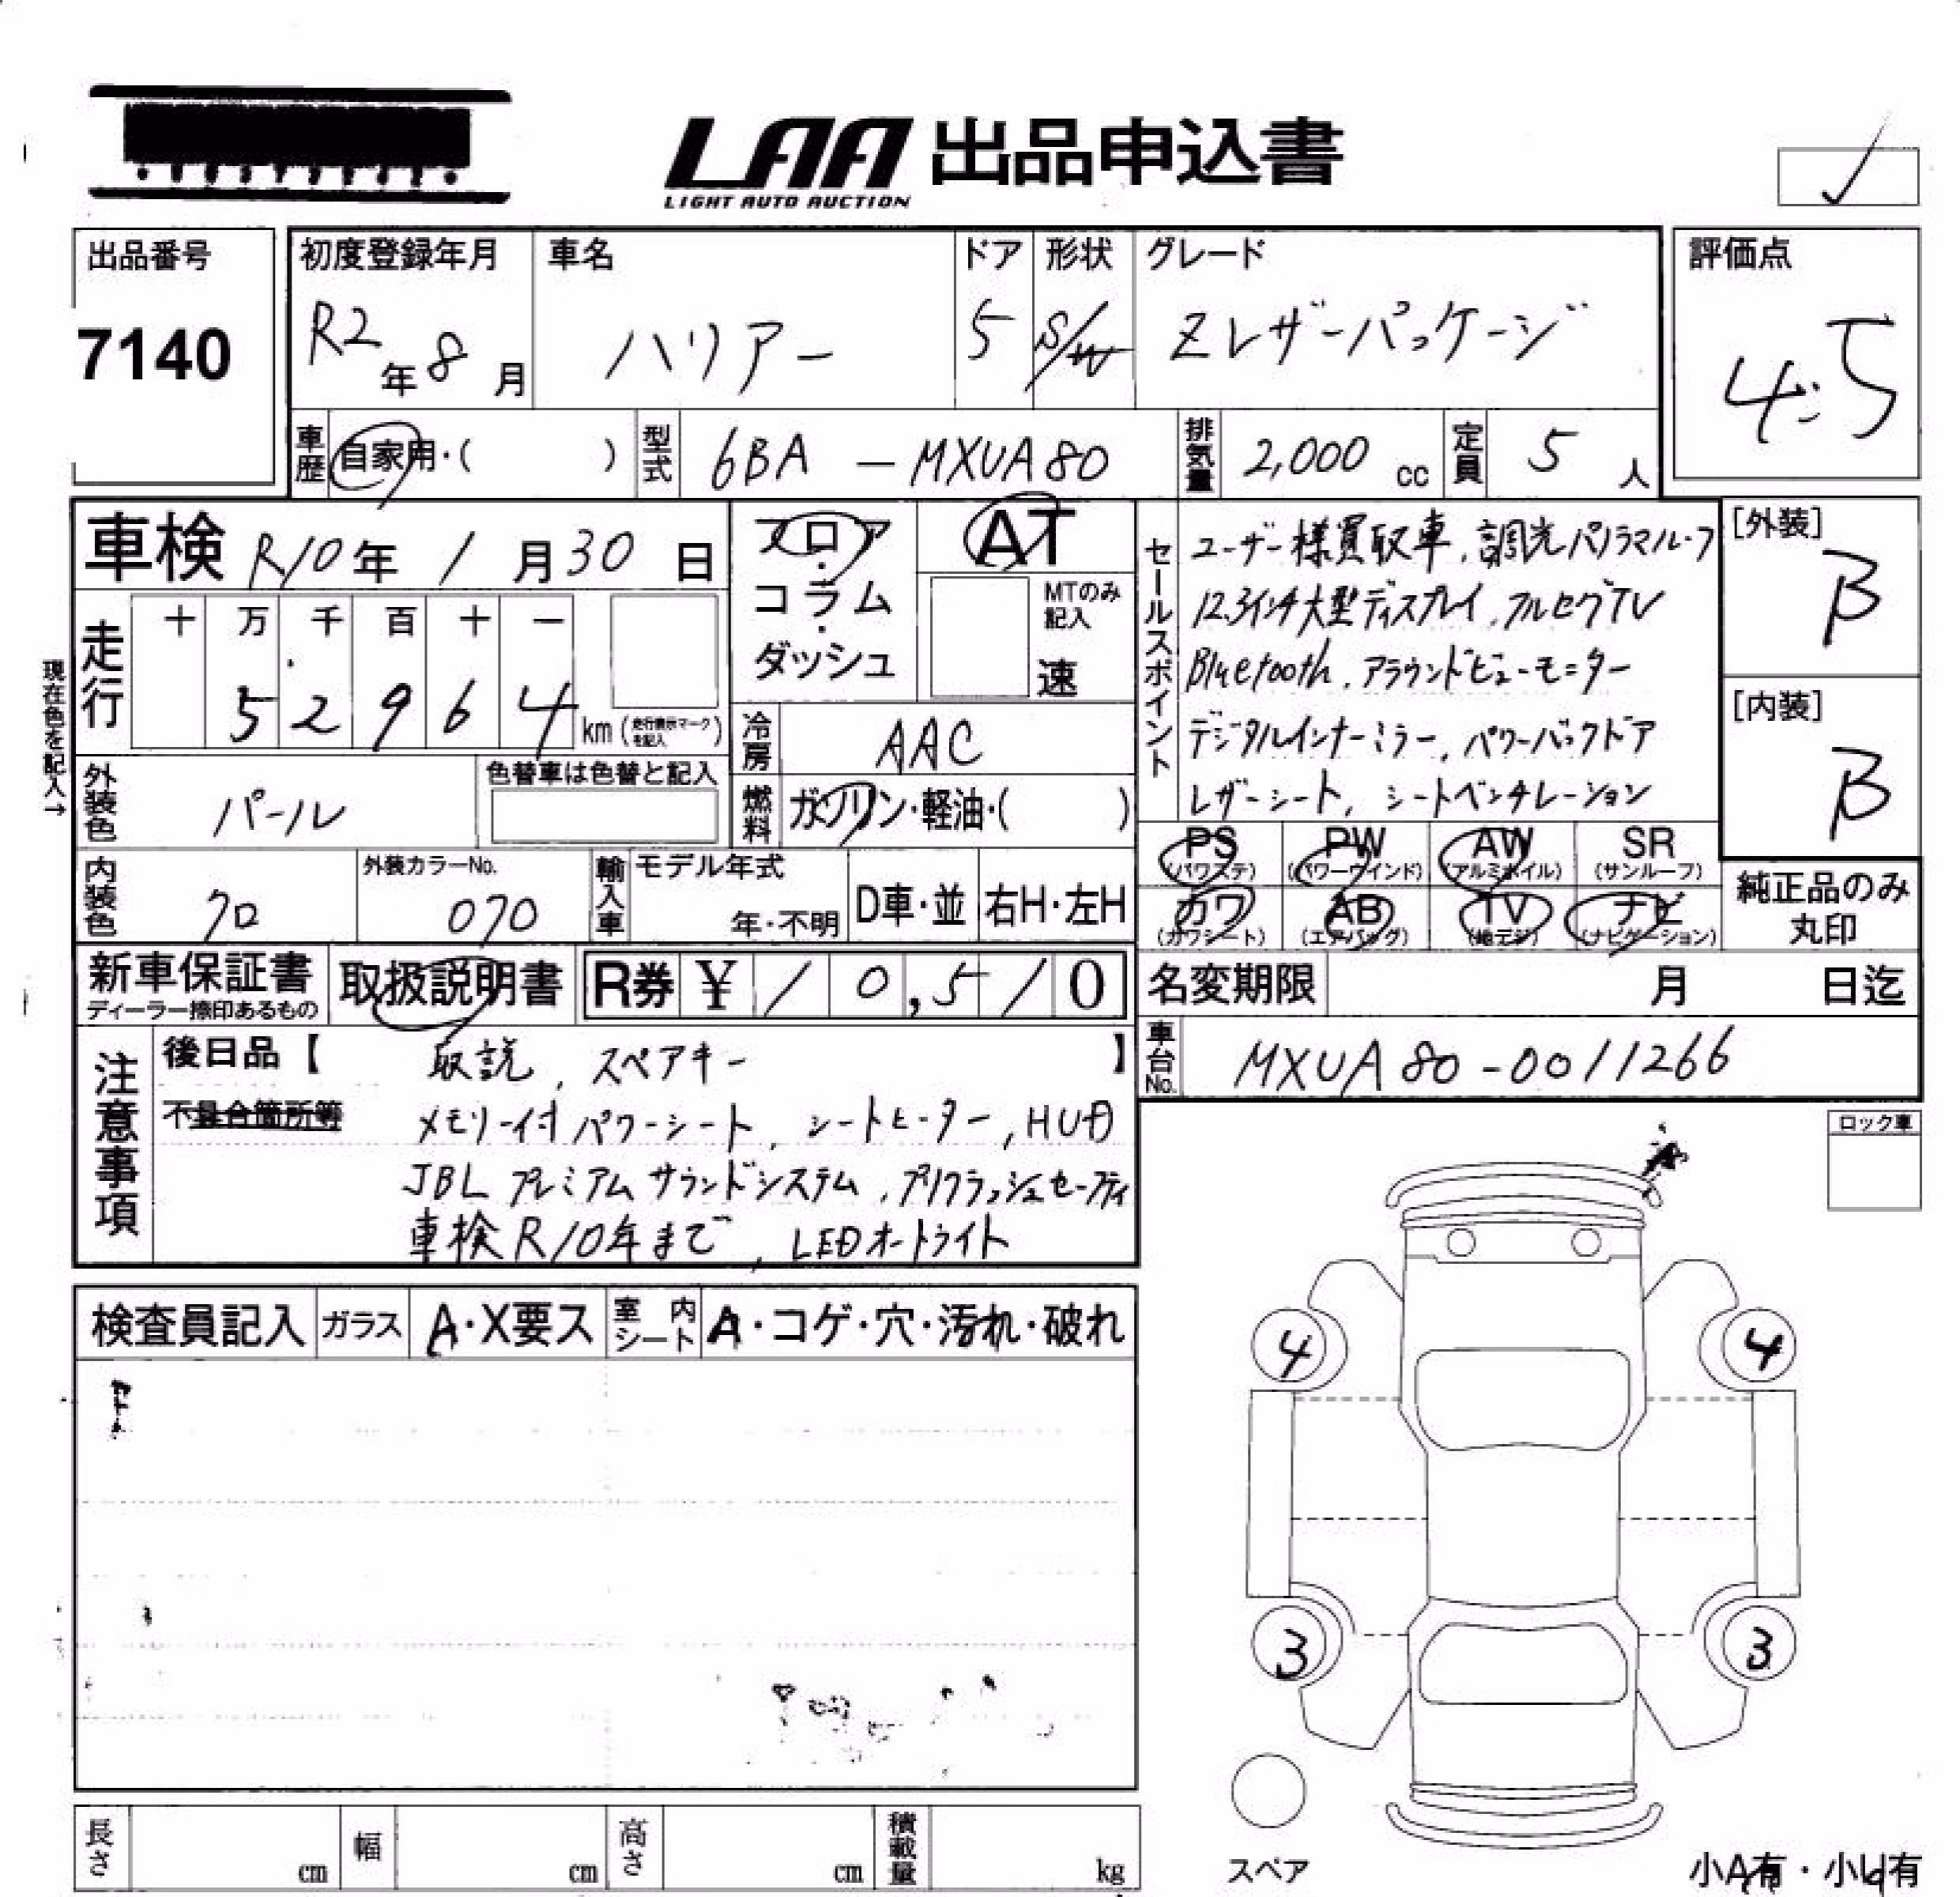 LAA 出品申込書
LIGHT AUTO AUCTION
出品番号
7140
初度登録年月
R2年8月
車名
ハリアー
ドア
5
形状
S/W
グレード
Zレザーパッケージ
評価点
4.5
車歴
自家用・( )
型式
6BA - MXUA80
排気量
2,000 cc
定員
5 人
車検 R10年 1月30日
フロア・コラム・ダッシュ
AT
MTのみ記入
速
セールスポイント
ユーザー様買取車, 調光パノラマルーフ
12.3インチ大型ディスプレイ, フルセグTV
Bluetooth, アラウンドビューモニター
デジタルインナーミラー, パワーバックドア
レザーシート, シートベンチレーション
[外装]
B
[内装]
B
現在色を記入→
走行
十 万 千 百 十 一
5 2 9 6 4 km (走行表示マークを記入)
冷房
AAC
外装色
パール
色替車は色替と記入
燃料
ガソリン・軽油・( )
内装色
クロ
外装カラーNo.
070
輸入車
モデル年式
年・不明
D車・並
右H・左H
PS (パワステ)
PW (パワーウインド)
AW (アルミホイル)
SR (サンルーフ)
カワ (カワシート)
AB (エアバッグ)
TV (地デジ)
ナビ (ナビゲーション)
純正品のみ丸印
新車保証書
ディーラー捺印あるもの
取扱説明書
R券 ¥ 1 0,5 1 0
名変期限 月 日迄
車台No.
MXUA80-0011266
注意事項
後日品【 取説, スペアキー 】
不具合箇所等
メモリー付パワーシート, シートヒーター, HUD
JBL プレミアムサウンドシステム, プリクラッシュセーフティ
車検R10年まで, LEDオートライト
ロック車
検査員記入
ガラス
A・X要ス
室内シート
A・コゲ・穴・汚れ・破れ
4
4
3
3
スペア
長さ cm
幅 cm
高さ cm
積載量 kg
小A有・小U有